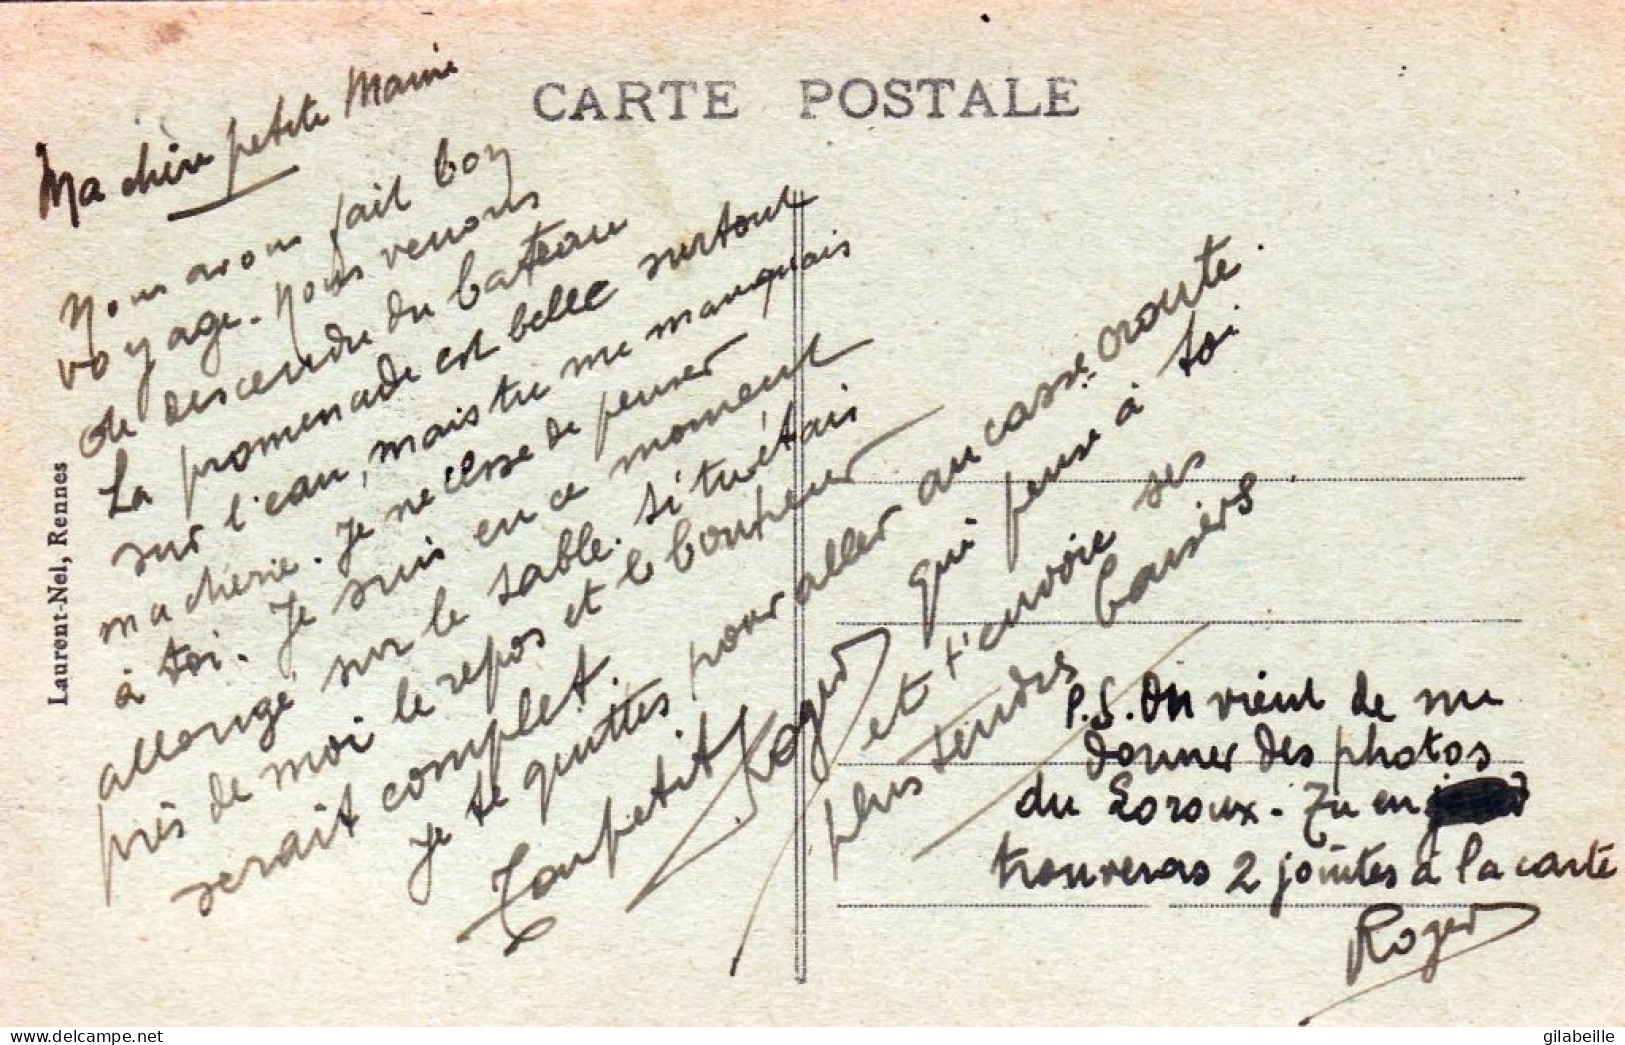 CARTE POSTALE
Ma chère petite Mamie
Nous avons fait bon
voyage. Nous venons
de descendre du bateau
La promenade est belle surtout
sur l'eau, mais tu me manquais
ma chérie. Je ne cesse de penser
à toi. Je suis en ce moment
allongé sur le sable. Si tu étais
près de moi le repos et le bonheur
serait complet.
Je te quittes pour aller au casse-croute.
Ton petit Roger qui pense à toi
et t'envoie ses
plus tendres baisers.
P.S. On vient de me
donner des photos
du Loroux - Tu en
trouveras 2 jointes à la carte
Roger
Laurent-Nel, Rennes
https://www.delcampe.net
gilabeille